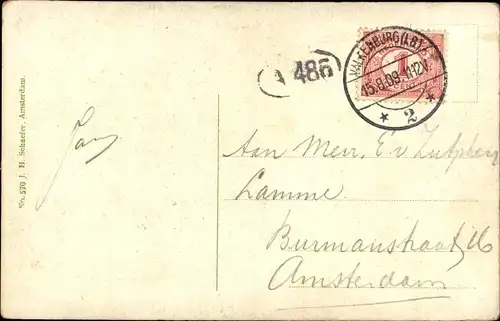 No. 570 J. H. Schaefer, Amsterdam.
486
VALKENBURG (LB)
1
15.8.09
2
Aan Mevr. E. v. Zutphen
Lamme
Burmanstraat 16
Amsterdam